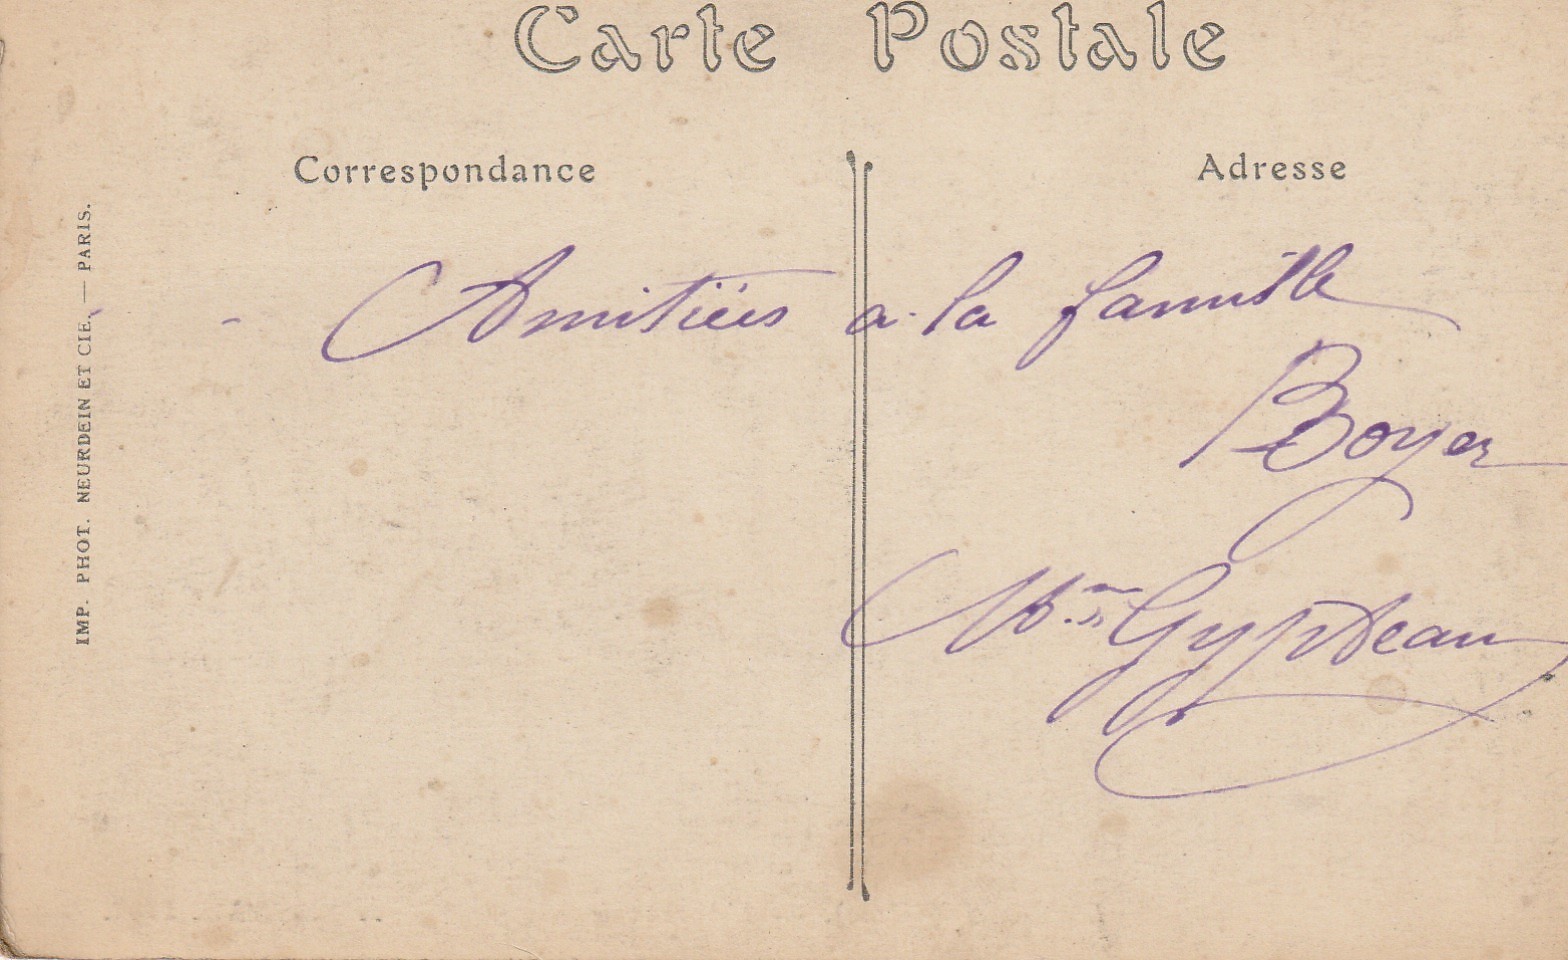 Carte Postale
Correspondance
Adresse
IMP. PHOT. NEURDEIN ET CIE. — PARIS.
- Amitiées a la famille
Boyer